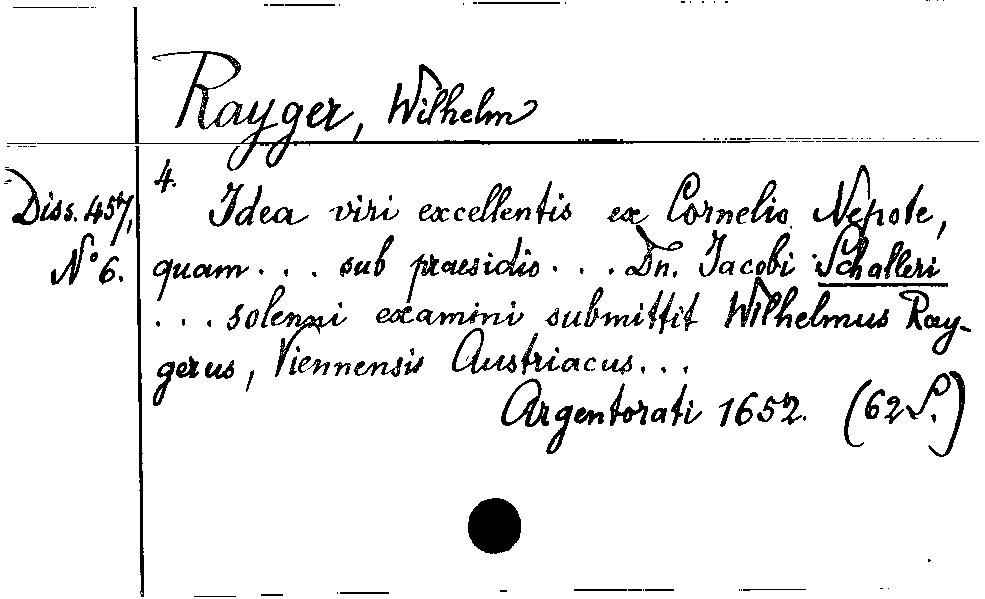 Rayger, Wilhelm
Diss. 457,
N° 6.
4.
Idea viri excellentis ex Cornelio Nepote,
quam . . . sub praesidio . . . Dn. Jacobi Schalleri
. . . solenni examini submittit Wilhelmus Ray-
gerus, Viennensis Austriacus . . .
Argentorati 1652. (62 S.)